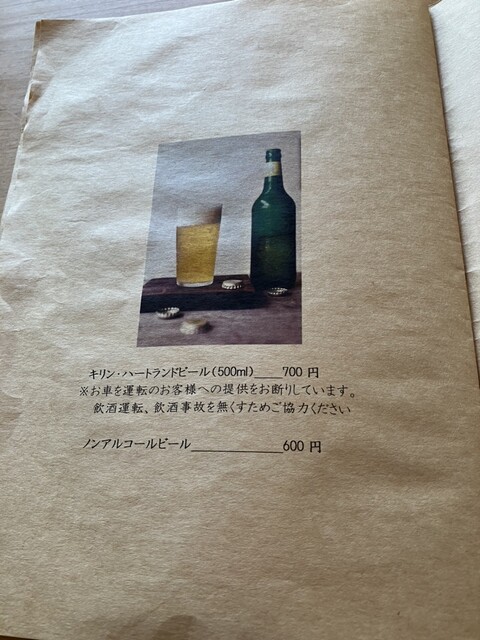 キリン・ハートランドビール(500ml)____700 円
※お車を運転のお客様への提供をお断りしています。
飲酒運転、飲酒事故を無くすためご協力ください
ノンアルコールビール______________600 円